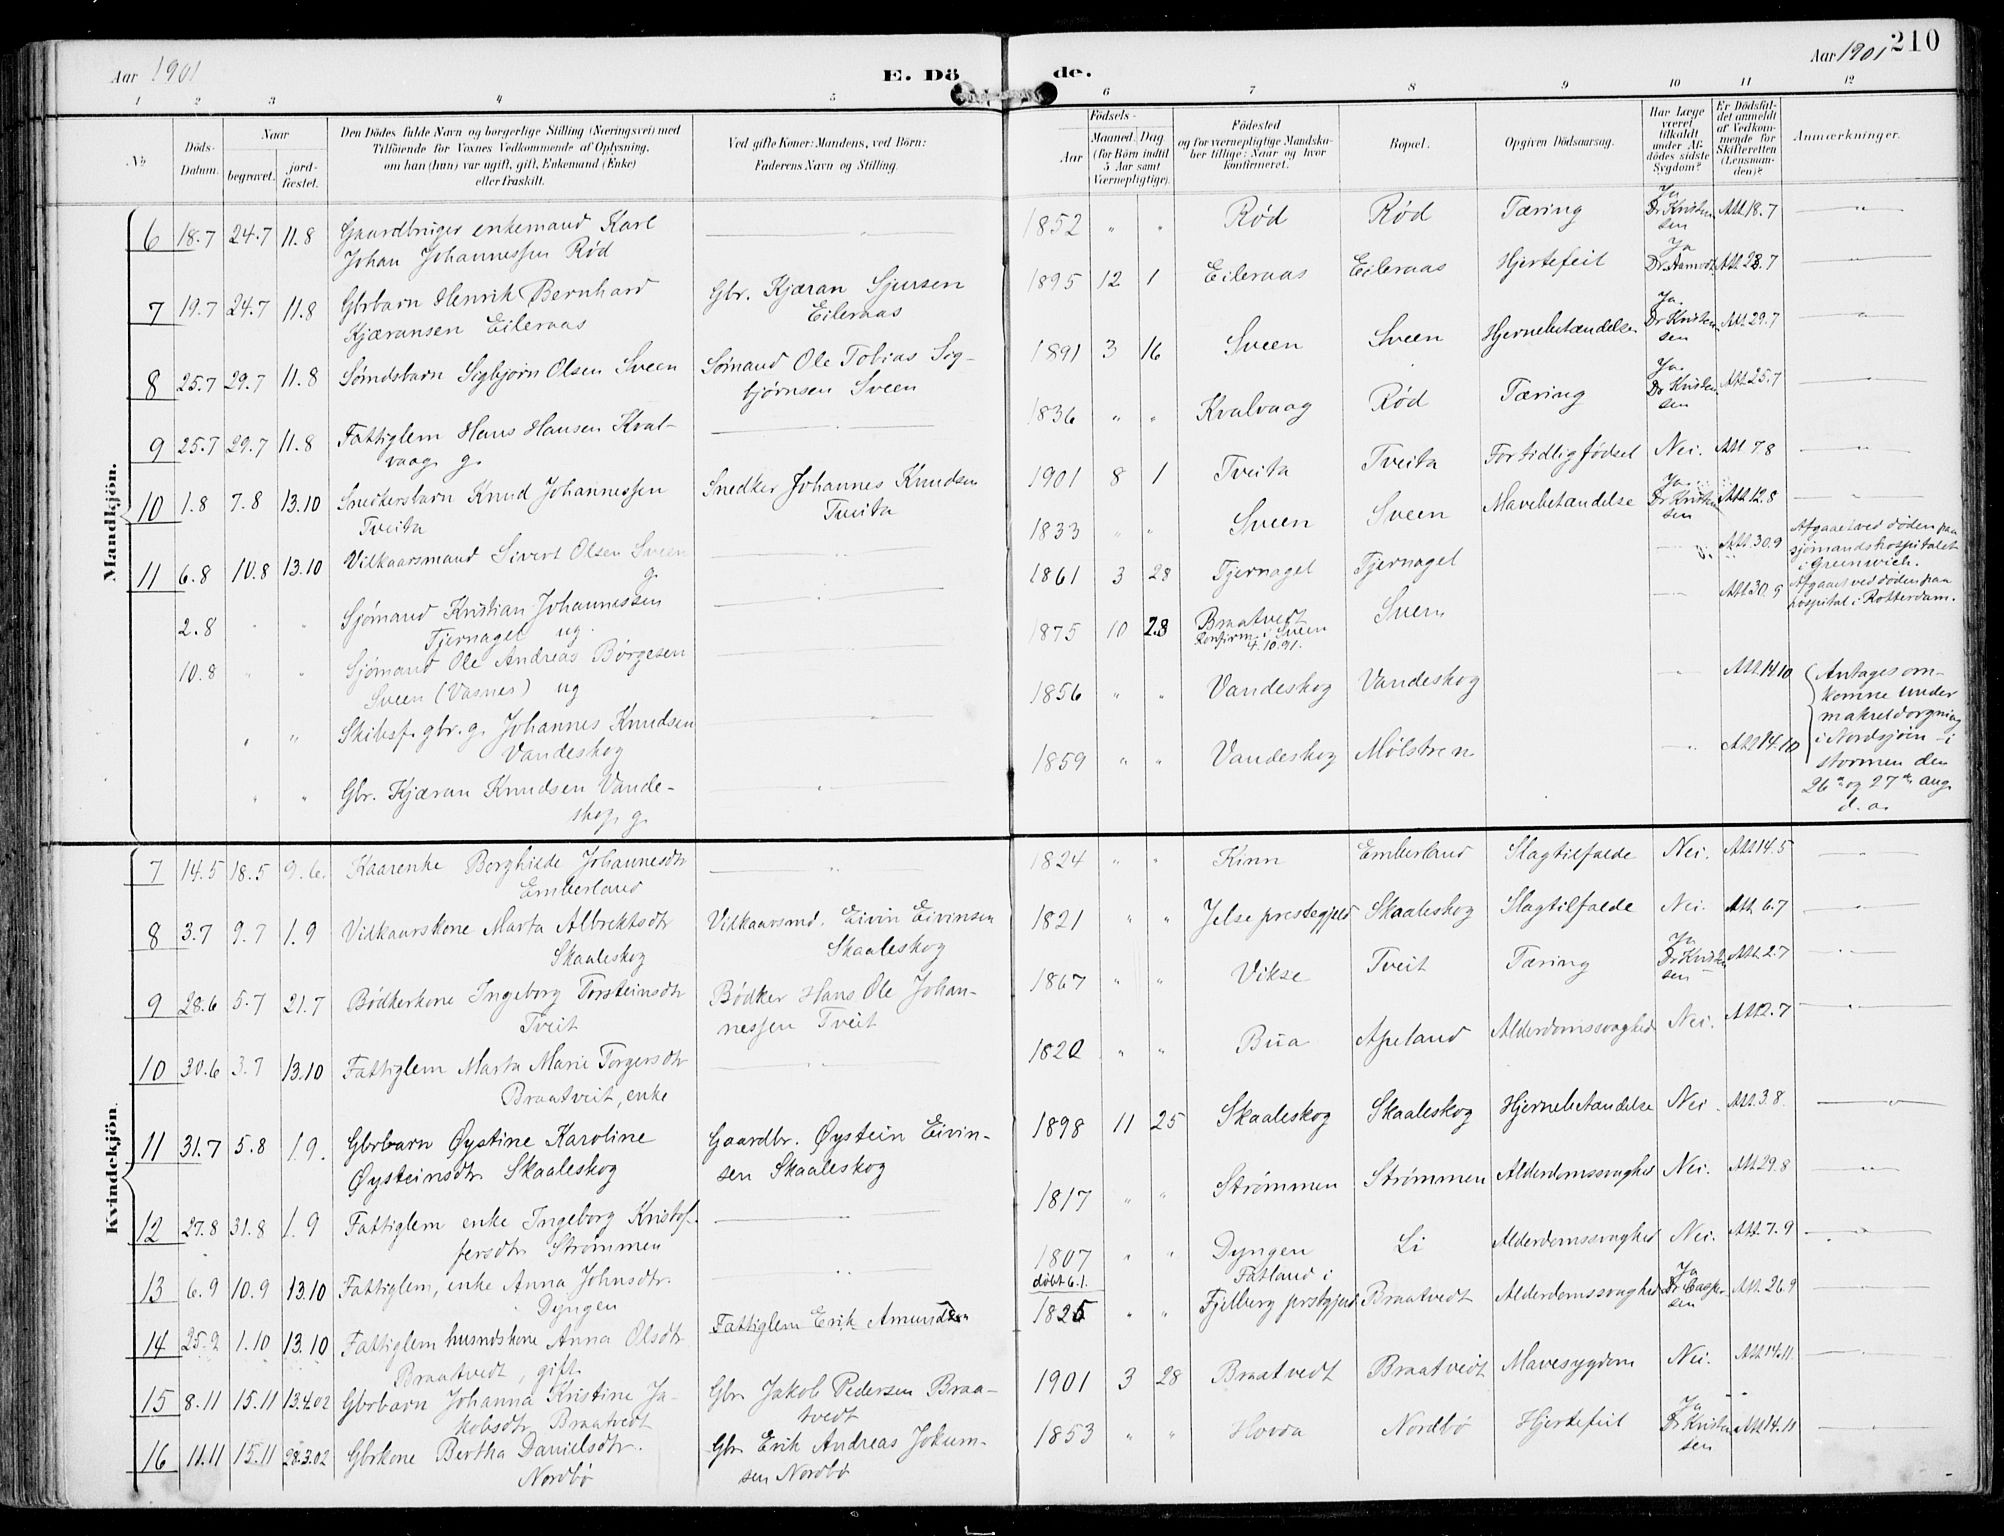 Aar 1901
E. Dö
de.
Aar 1901
210
1 2 3 4 5 6 7 8 9 10 11 12
No
Döds-
Datum.
Naar
begravet.
jord-
fæstet.
Den Dödes fulde Navn og borgerlige Stilling (Næringsvei) med
Tilföiende for Voxnes Vedkommende af Oplysning,
om han (hun) var ugift, gift, Enkemand (Enke)
eller fraskilt.
Ved gifte Koner: Mandens, ved Börn:
Faderens Navn og Stilling.
Födsels-
Aar
Maaned. Dag
(for Börn indtil
5 Aar samt
Værnepligtige).
Födested
og for værnepligtige Mandska-
ber tillige: Naar og hvor
konfirmeret.
Bopæl.
Opgiven Dödsaarsag.
Har Læge
været
tilkaldt
under Af-
dödes sidste
Sygdom?
Er Dödsfal-
det anmeldt
af Vedkom-
mende for
Skifteretten
(Lensman-
den)?
Anmærkninger.
Mandkjön.
6 18.7 24.7 11.8 Gaardbruger enkemand Karl
Johan Johannessen Rød
1852 " " Rød Rød Tæring Ja Dr Kristensen Att 18.7
7 19.7 24.7 11.8 Gbrbarn Henrik Bernhard
Kjæransen Eileraas
Gbr. Kjæran Sjursen
Eileraas
1895 12 1 Eileraas Eileraas Hjertefeil Ja Att 23.7
8 25.7 29.7 11.8 Sømdsbarn Sigbjørn Olsen Sveen
Sømand Ole Tobias Sig-
bjørnsen Sveen
1891 3 16 Sveen Sveen Hjernebetændelse Ja. Dr Kristensen Att 29.7
9 25.7 29.7 11.8 Fattiglem Hans Hansen Kval-
vaag g.
1836 " " Kvalvaag Rød Tæring Ja. Dr Kristensen Att 25.7
10 1.8 7.8 13.10 Snedkersbarn Knud Johannessen
Tveita
Snedker Johannes Knudsen
Tveita
1901 8 1 Tveita Tveita For tidlig fødsel Nei. Att 7.8
11 6.8 10.8 13.10 Vilkaarsmand Sivert Olsen Sveen
g.
1833 " " Sveen Sveen Mavebetændelse Ja. Dr Kristensen Att 12.8
2.8 " " Sjømand Kristian Johannessen
Tjernagel ug.
1861 3 28 Tjernagel Tjernagel Att 30.9
Afgaaet ved døden paa
sjømandshospitalet
i Greenwich.
10.8 " " Sjømand Ole Andreas Børgesen
Sveen (Vasnes) ug
1875 10 28 Braatvedt
Konfirm. i Sveen
4.10.91.
Sveen Att 30.9
Afgaaet ved døden paa
hospital i Rotterdam.
" " Skibsf. gbr. g. Johannes Knudsen
Vandeskog
1856 " " Vandeskog Vandeskog Att 14.10
" " Gbr. Kjæran Knudsen Vande-
skog, g.
1859 " " Vandeskog Mølstren Att 14.10
Antages om-
komne under
makreldorgning
i Nordsjøen i
stormen den
26de og 27de aug.
d. a.
Kvindekjön.
7 14.5 18.5 9.6. Kaarenke Borghilde Johannesdtr
Emberland
1824 " " Kinn Emberland Slagtilfælde Nei. Att 14.5
8 3.7 9.7 1.9 Vilkaarskone Marta Albrektsdtr
Skaaleskog
Vilkaarsmd. Eivin Eivinsen
Skaaleskog
1821 " " Jelse prestegjeld Skaaleskog Slagtilfælde Nei. Att 6.7
9 28.6 5.7 21.7 Bødkerkone Ingeborg Torsteinsdtr
Tveit
Bødker Hans Ole Johan-
nessen Tveit
1867 " " Vikse Tveit Tæring Ja Dr Kristensen Att 2.7
10 30.6 3.7 13.10 Fattiglem Marta Marie Torgersdtr
Braatveit, enke
1820 " " Bua Apeland Alderdomssvaghed Nei. Att 2.7
11 31.7 5.8 1.9. Gbrbarn Øystine Karoline
Øysteinsdtr Skaaleskog
Gaardbr. Øystein Eivin-
sen Skaaleskog
1898 11 25 Skaaleskog Skaaleskog Hjernebetændelse Nei. Att 3.8.
12 27.8 31.8 1.9 Fattiglem enke Ingeborg Kristof-
fersdtr Strømmen
1817 " " Strømmen Strømmen Alderdomssvaghed Nei. Att 29.8
13 6.9 10.9 13.10 Fattiglem, enke Anna Johnsdtr.
Dyngen
1807
døbt 6.1.
" " Dyngen Li Alderdomssvaghed Nei. Att 7.9
14 25.9 1.10 13.10 Fattiglem husmdskone Anna Olsdtr
Braatvedt, gift
Fattiglem Erik Amundsen
1825 " " Fatland i
Fjelberg prstgjeld Braatvedt Alderdomssvaghed Ja Dr Caspersen Att. 26.9
15 8.11 15.11 13.4.02 Gbrbarn Johanna Kristine Ja-
kobsdtr Braatvedt
Gbr. Jakob Pedersen Braa-
tvedt
1901 3 28 Braatvedt Braatveidt Mavesygdom Nei. Att 14.11.
16 11.11 15.11 28.3.02 Gbrkone Bertha Danielsdtr.
Nordbø
Gbr. Erik Andreas Jokum-
sen Nordbø
1853 " " Hovda Nordbø Hjertefeil Ja Dr Kristensen Att 14.11